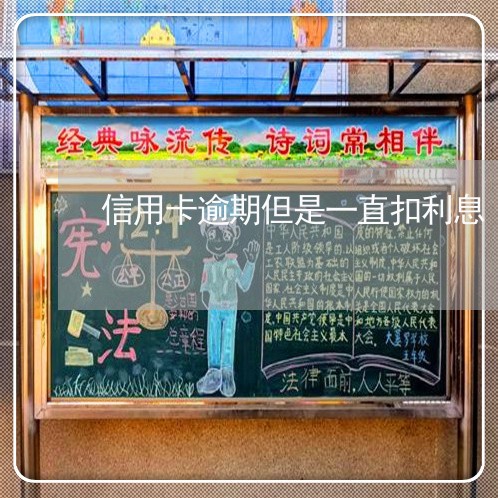 经典咏流传 诗词常相伴
信用卡逾期但是一直扣利息
宪法
12.4
公平
公正
总章程
中华人民共和国
是工人阶级领导的,以
工农联盟为基础的
人民民主专政的社会主义
国家,社会主义制度是中
华人民共和国的根本制
度,中国共产党领导是中
国特色社会主义最本
质的特征,禁止任何
组织或者个人破坏社会
主义制度,中华人民共和
国的一切权利属于人民,
人民行使国家权力的机
关是全国人民代表大会
和地方各级人民代表
大会。
学校
五年级
法律面前,人人平等